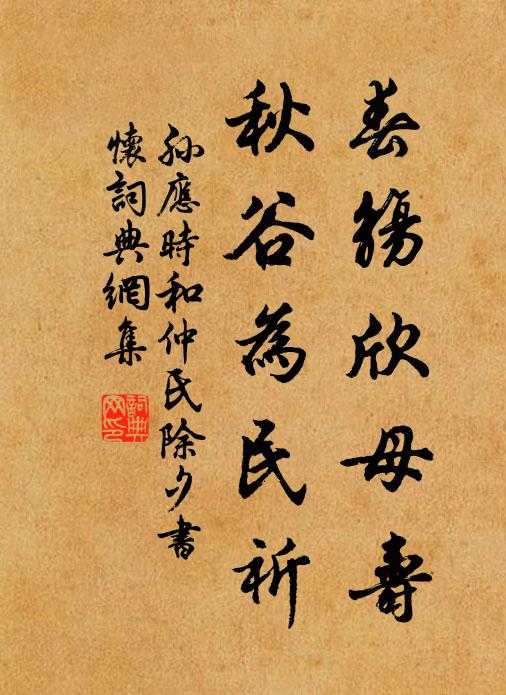 春觴欣母壽
秋谷為民祈
孫應時和仲氏除夕書
懷詞典網集
詞典
网印